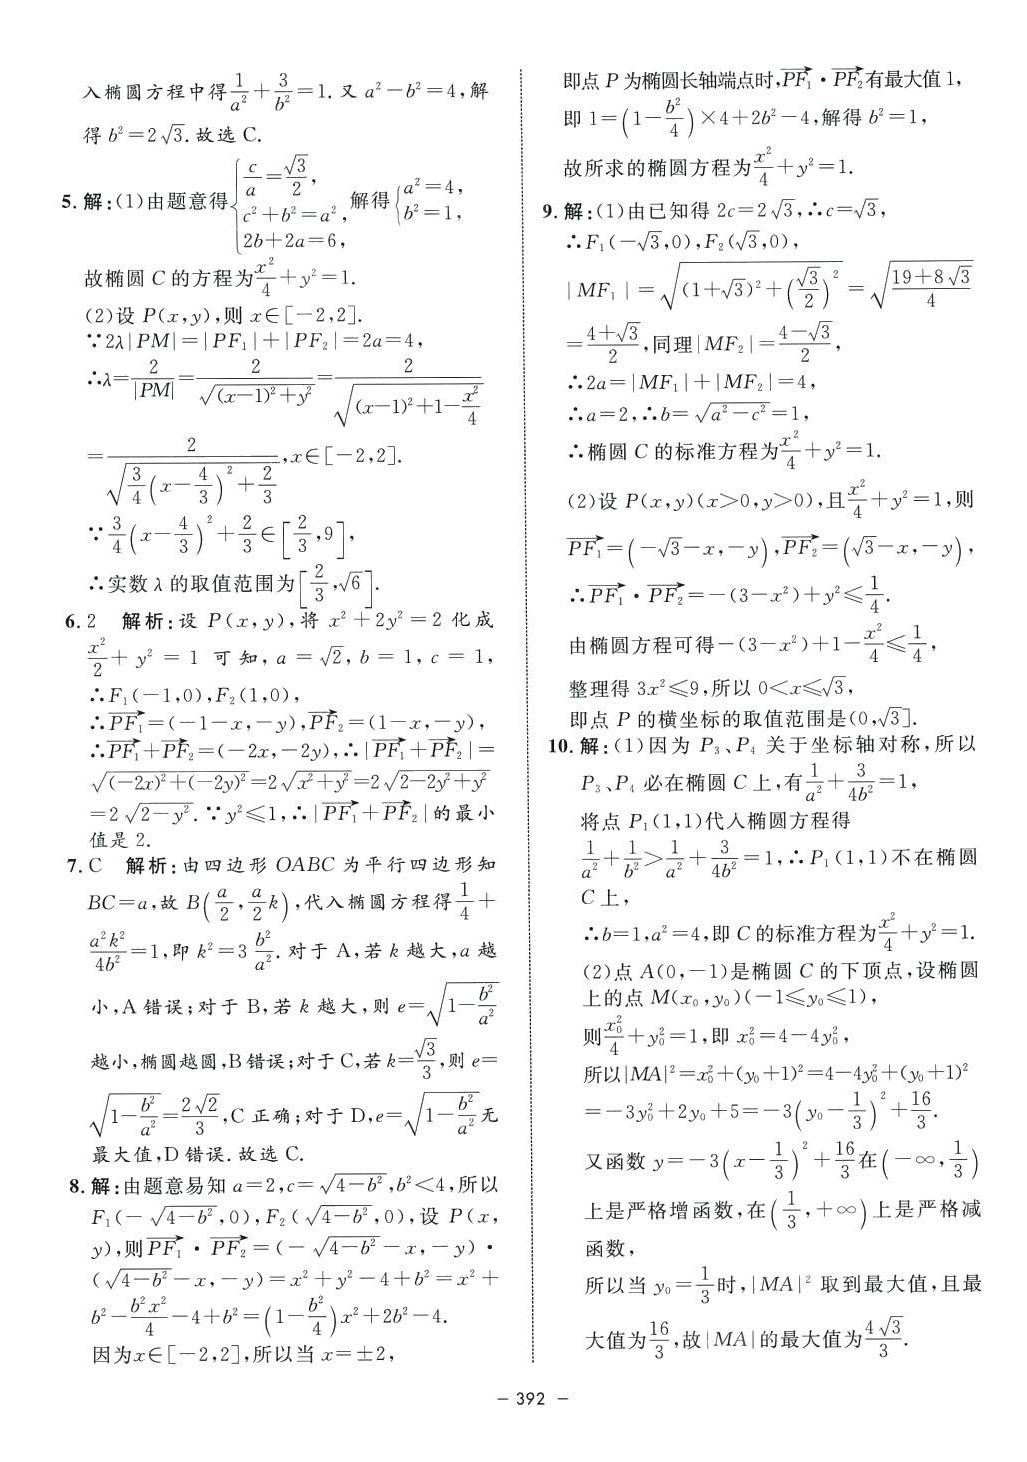 入椭圆方程中得 1/a² + 3/b² =1. 又 a²−b²=4,解
得 b²=2√3. 故选 C.
5. 解:(1)由题意得 { c/a=√3/2, c²+b²=a², 2b+2a=6, 解得 { a²=4, b²=1,
故椭圆 C 的方程为 x²/4+y²=1.
(2)设 P(x,y),则 x∈[−2,2].
∵2λ|PM|=|PF₁|+|PF₂|=2a=4,
∴λ=2/|PM|=2/√((x−1)²+y²)=2/√((x−1)²+1−x²/4)
=2/√(3/4(x−4/3)²+2/3),x∈[−2,2].
∵3/4(x−4/3)²+2/3∈[2/3,9],
∴实数 λ 的取值范围为[2/3,√6].
6. 2 解析:设 P(x,y),将 x²+2y²=2 化成
x²/2+y²=1 可知,a=√2,b=1,c=1,
∴F₁(−1,0),F₂(1,0),
∴PF₁→=(−1−x,−y),PF₂→=(1−x,−y),
∴PF₁→+PF₂→=(−2x,−2y),∴|PF₁→+PF₂→|=
√((−2x)²+(−2y)²)=2√(x²+y²)=2√(2−2y²+y²)
=2√(2−y²). ∵y²≤1,∴|PF₁→+PF₂→|的最小
值是 2.
7. C 解析:由四边形 OABC 为平行四边形知
BC=a,故 B(a/2,a/2k),代入椭圆方程得 1/4+
a²k²/4b²=1,即 k²=3 b²/a². 对于 A,若 k 越大,a 越
小,A 错误;对于 B,若 k 越大,则 e=√(1−b²/a²)
越小,椭圆越圆,B 错误;对于 C,若 k=√3/3,则 e=
√(1−b²/a²)=2√2/3,C 正确;对于 D,e=√(1−b²/a²)无
最大值,D 错误. 故选 C.
8. 解:由题意易知 a=2,c=√(4−b²),b²<4,所以
F₁(−√(4−b²),0),F₂(√(4−b²),0),设 P(x,
y),则PF₁→·PF₂→=(−√(4−b²)−x,−y)·
(√(4−b²)−x,−y)=x²+y²−4+b²=x²+
b²−b²x²/4−4+b²=(1−b²/4)x²+2b²−4.
因为x∈[−2,2],所以当 x=±2,
即点 P 为椭圆长轴端点时,PF₁→·PF₂→有最大值 1,
即 1=(1−b²/4)×4+2b²−4,解得 b²=1,
故所求的椭圆方程为 x²/4+y²=1.
9. 解:(1)由已知得 2c=2√3,∴c=√3,
∴F₁(−√3,0),F₂(√3,0),
|MF₁|=√((1+√3)²+(√3/2)²)=√((19+8√3)/4)
=(4+√3)/2,同理|MF₂|=(4−√3)/2,
∴2a=|MF₁|+|MF₂|=4,
∴a=2,∴b=√(a²−c²)=1,
∴椭圆 C 的标准方程为 x²/4+y²=1.
(2)设 P(x,y)(x>0,y>0),且 x²/4+y²=1,则
PF₁→=(−√3−x,−y),PF₂→=(√3−x,−y),
∴PF₁→·PF₂→=−(3−x²)+y²≤1/4.
由椭圆方程可得−(3−x²)+1−x²/4≤1/4,
整理得 3x²≤9,所以 0<x≤√3,
即点 P 的横坐标的取值范围是(0,√3].
10. 解:(1)因为 P₃、P₄ 关于坐标轴对称,所以
P₃、P₄ 必在椭圆 C 上,有 1/a²+3/4b²=1,
将点 P₁(1,1)代入椭圆方程得
1/a²+1/b²>1/a²+3/4b²=1,∴P₁(1,1)不在椭圆
C 上,
∴b=1,a²=4,即 C 的标准方程为 x²/4+y²=1.
(2)点 A(0,−1)是椭圆 C 的下顶点,设椭圆
上的点 M(x₀,y₀)(−1≤y₀≤1),
则 x₀²/4+y₀²=1,即 x₀²=4−4y₀²,
所以|MA|²=x₀²+(y₀+1)²=4−4y₀²+(y₀+1)²
=−3y₀²+2y₀+5=−3(y₀−1/3)²+16/3.
又函数 y=−3(x−1/3)²+16/3 在(−∞,1/3)
上是严格增函数,在(1/3,+∞)上是严格减
函数,
所以当 y₀=1/3 时,|MA|² 取到最大值,且最
大值为 16/3,故|MA|的最大值为 4√3/3.
− 392 −